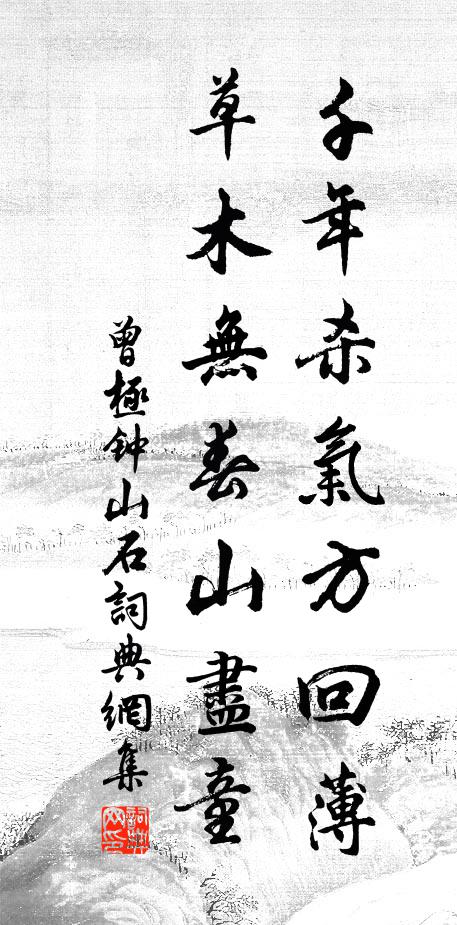 千年杀氣方回薄
草木無春山盡童
曾極钟山石詞典網集